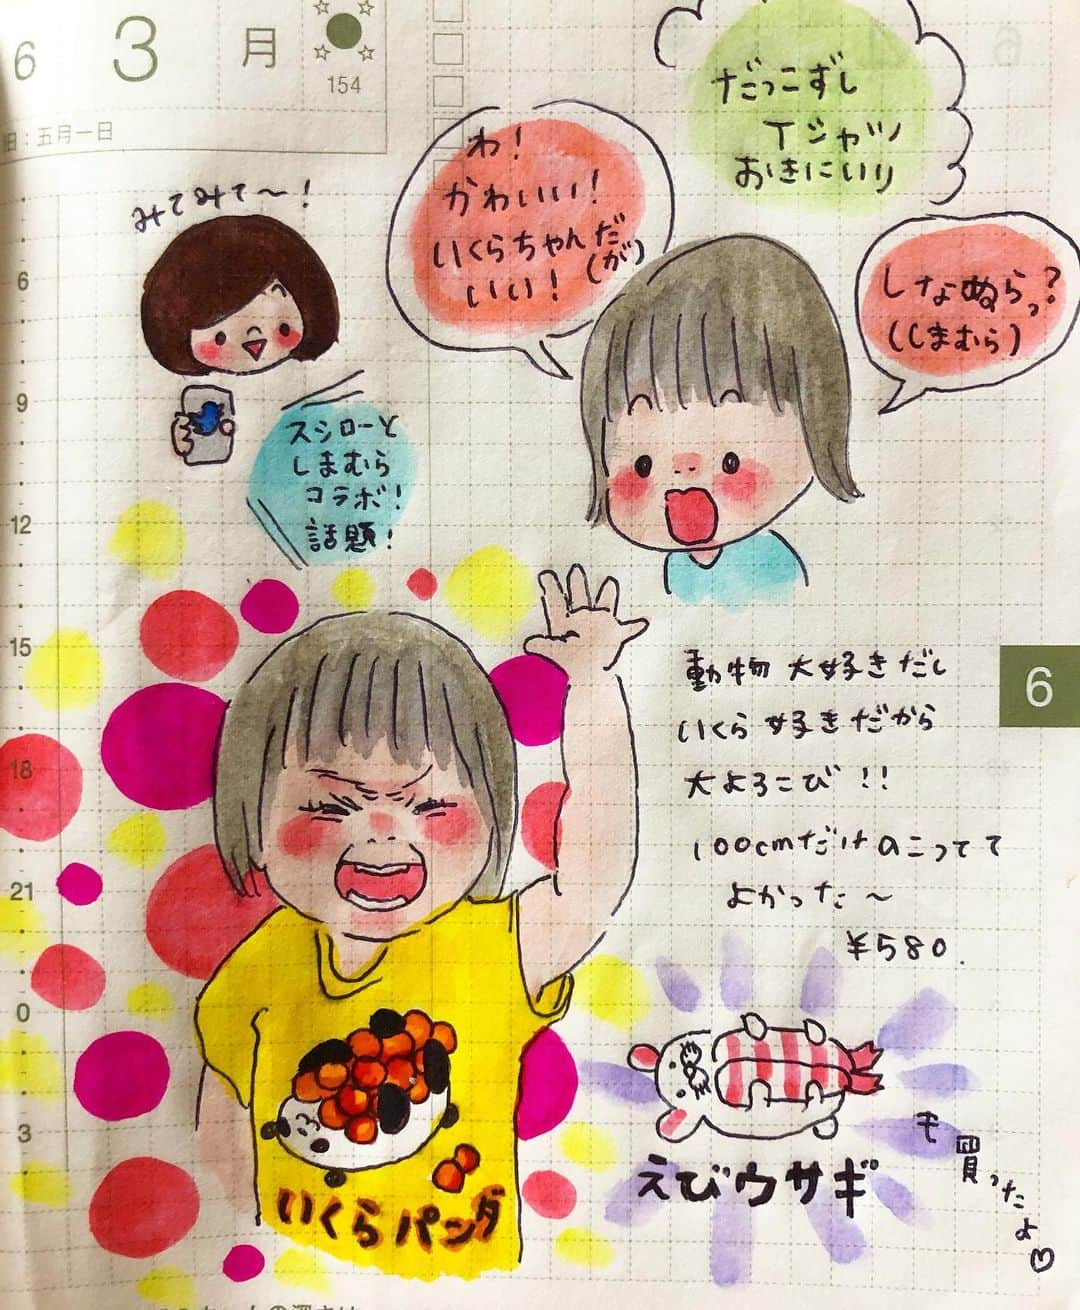 6 3 月
154
旧：五月一日
だっこずし
Tシャツ
おきにいり
わ！
かわいい！
いくらちゃんだ
(が)
いい！
みてみて〜！
しなぬらっ？
(しまむら)
スシローと
しまむら
コラボ！
話題！
6
9
12
15
18
21
0
3
6
動物 大好きだし
いくら 好きだから
大よろこび！！
100cmだけのこってて
よかった〜
¥580.
いくらパンダ
えびウサギ
も買ったよ♡